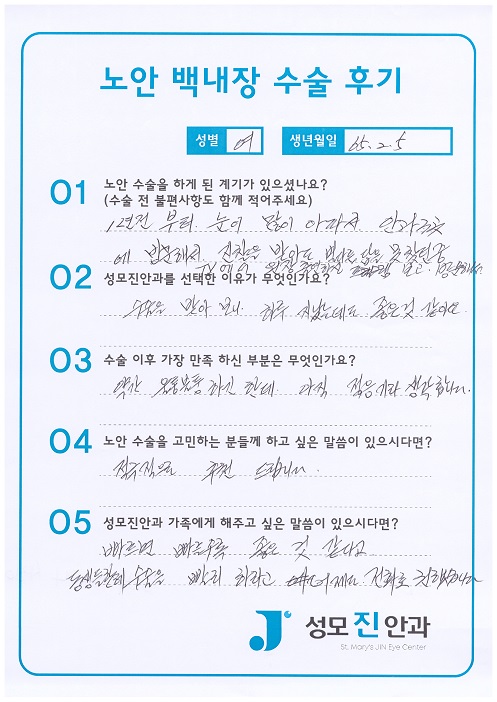 노안 백내장 수술 후기
성별 여 생년월일 65. 2. 5
01 노안 수술을 하게 된 계기가 있으셨나요?
(수술 전 불편사항도 함께 적어주세요)
1년전 부터 눈이 많이 아파서 안과
에 방문해서 진찰을 받아도 못 찾던중
TV에 원장 보고
02 성모진안과를 선택한 이유가 무엇인가요?
수술을 받아 보니 하루 지났는데도 좋은것 같아요
03 수술 이후 가장 만족 하신 부분은 무엇인가요?
약간 울퉁불퉁 하긴 한데 아직 적응기라 생각합니다.
04 노안 수술을 고민하는 분들께 하고 싶은 말씀이 있으시다면?
적극적으로 추천 드립니다.
05 성모진안과 가족에게 해주고 싶은 말씀이 있으시다면?
빠르면 빠를수록 좋은 것 같다고
동생들한테 수술을 빨리 하라고 어제도 전화로
성모진안과
St. Mary's JIN Eye Center